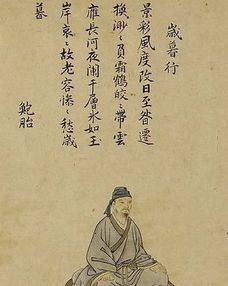 歳暮行
景移風度改日至晷遷
換渺〻負霜鶴皎〻帶雲
雁長河夜闌干層氷如玉
岸哀〻故老容慘〻愁歳
暮
鮑昭